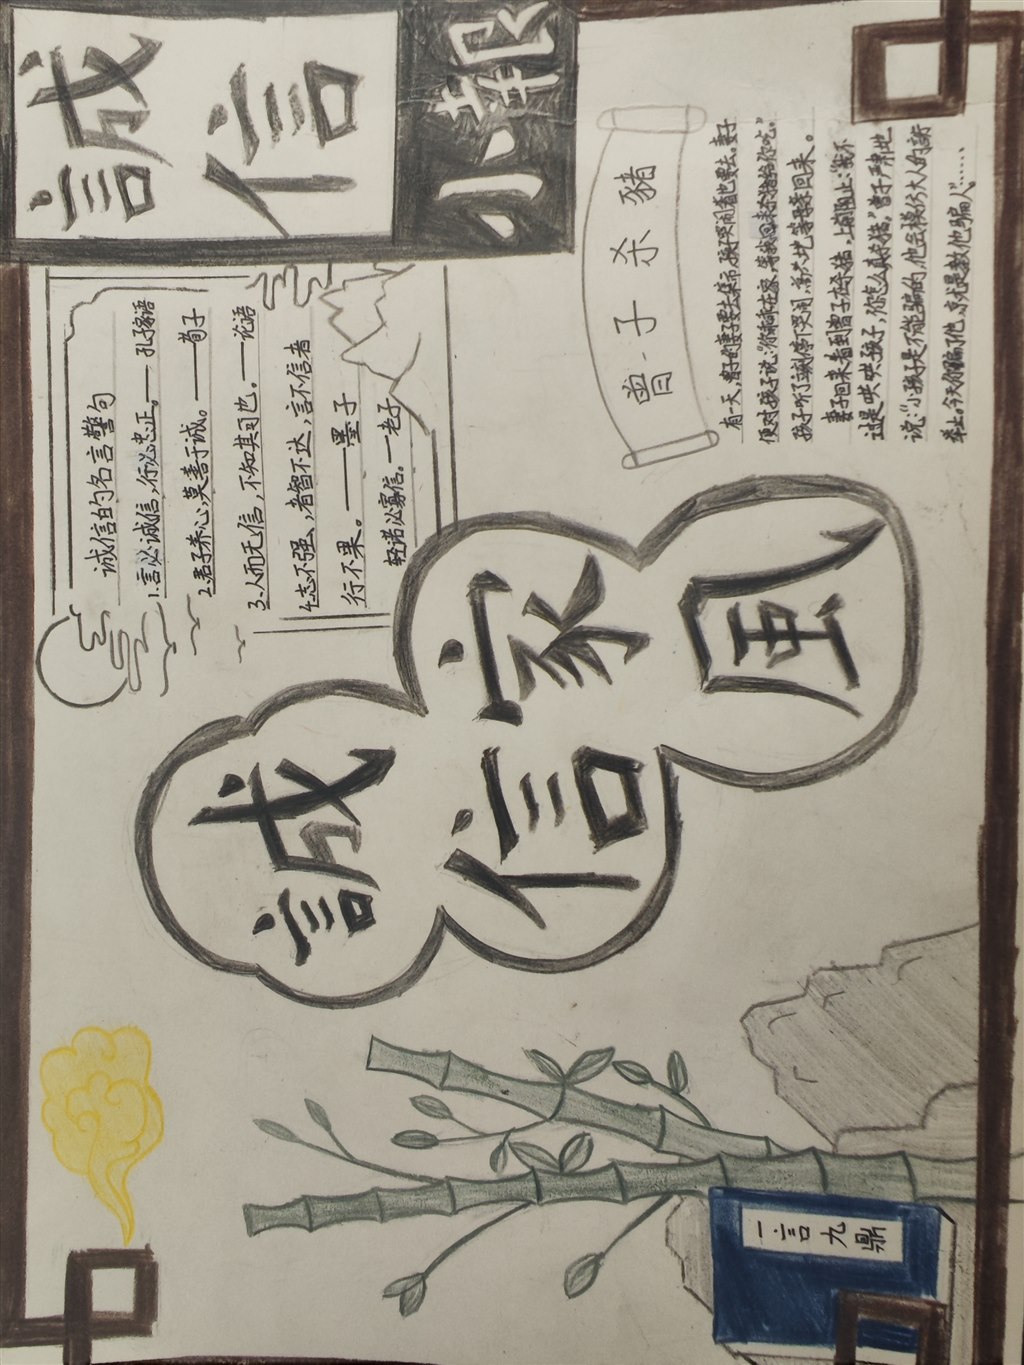 誠信
小报
诚信的名言警句
1.言必诚信,行必忠正。——孔子家语
2.君子养心,莫善于诚。——荀子
3.人而无信,不知其可也。——论语
4.志不强,者智不达,言不信者
行不果。——墨子
轻诺必寡信。—老子
誠
信家
风
曾子杀豬
有一天,曾子的妻子要去集市,孩子哭闹着也要去。妻子
便对孩子说:"你乖乖在家,等我回来杀猪给你吃"
孩子听了立刻停下哭闹,高兴地等母亲回来。
妻子回来看到曾子在杀猪,上前阻止:"我不
过是哄哄孩子,你怎么真杀猪,"曾子严肃地
说:"小孩子是不能骗的,他会模仿大人的
今天你骗了他,就是教他骗人"……
一言九鼎